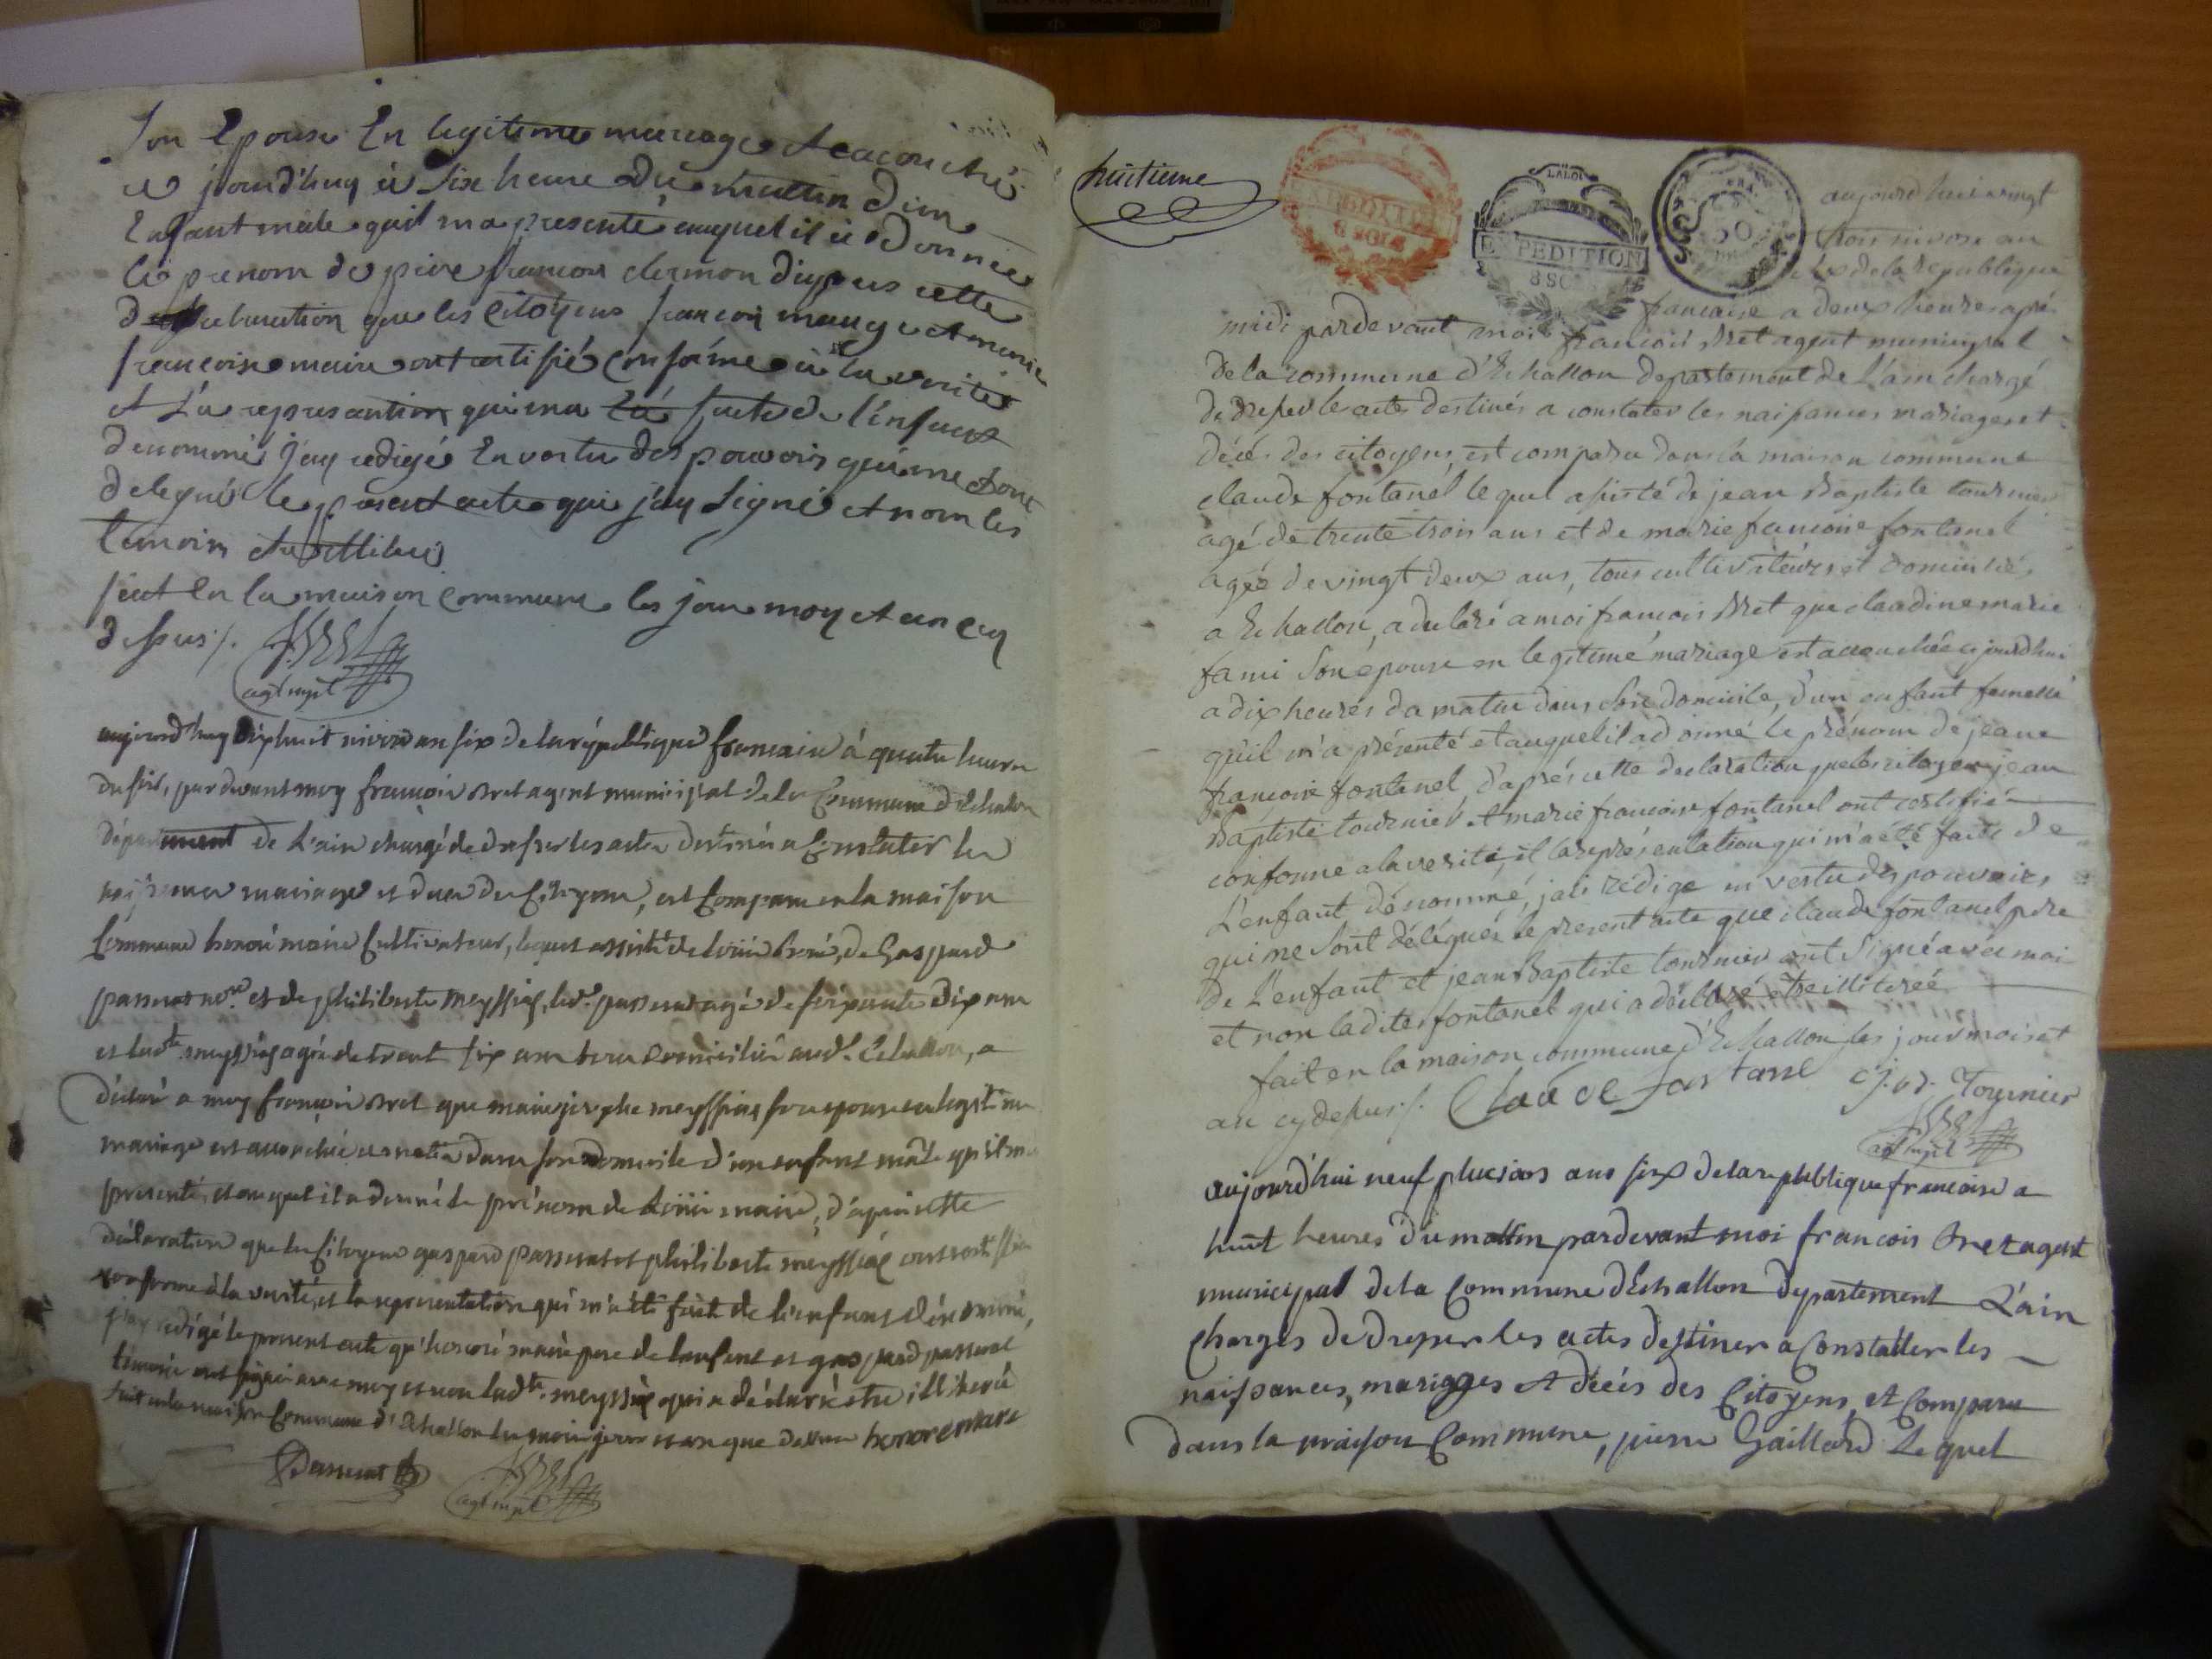 son epouse en legitime mariage et acouché
ce jourd'huy à six heure du mattin d'un
enfant male quil ma presenté auquel il à donné
le prenom de piere francois clermon dispres cette
declaration que les citoyens francois mauge et marie
francoise maire ont certifié conforme à la verité
et la represantion qui ma été faite de l'enfant
denommé j'ay redigé en vertu des pouvoirs qui me sont
delegués le present acte que j'ay signé et non les
temoins
fait en la maison commune les jour moy et an cy
dessus ./.
agt mpl
aujourd'huy dixhuit nivose an six de la république francaise à quatre heures
du soir, par devant moy francois Bret agent municipal de la Commune d'Echallon
département de L'ain chargé de dresser les actes destinés a Constater les
naissances mariages et deces des Citoyens, est Comparu en la maison
Commune honoré maire Cultivateur, lequel assisté de de Gaspard
passerat et de philiberte meyssiat, passerat agé de soixante dix ans
et ladte meyssiat agée de trente six ans tous domiciliés audt Echallon, a
déclaré a moy francois Bret que marie josephe meyssiat son epouse en legitime
mariage est accouchée ce matin dans son domicile d'un enfant mâle qu'il m'a
presenté, et auquel il a donné le prénom de maire, d'apres cette
déclaration que les Citoyens gaspard passerat et philiberte meyssiat ont certifié
conforme à la verité, et la representation qui m'a été faite de l'enfant dénommé,
j'ay redigé le present acte qu'honoré maire pere de l'enfant et gaspard passerat
témoin ont signé avec moy et non ladte meyssiat qui a déclaré etre illiterée
fait en la maison Commune d'Echallon les mois jour et an que dessus honore maire
Passerat
agt mpl
huitieme
LA LOI
EXPEDITION
8 SOLS
EXPEDITION
8 SO
50
aujourd'hui vingt
trois nivose an
six de la republique
francaise a deux heures apré
midi pardevant moi francois Bret agent municipal
de la commune d'Echallon departement de L'ain chargé
de dresser le actes destinés a constater les naissances mariages et
décés des citoyens, est comparu dans la maison commune
claude fontanel lequel assisté de jean Baptiste tournier
agé de trente trois ans et de marie francoise fontanel
agée de vingt deux ans, tous cultivateurs et domiciliés
a Echallon, a déclaré a moi francois Bret que claudine marie
fami son épouse en legitime mariage est accouchée cejourdhui
a dix heures da matin dans son domicile, d'un enfant femelle
qu'il m'a présenté et auquel il a donné le prénom de jeane
francoise fontanel, d'aprés cette declaration que les citoyens jean
Baptiste tournier et marie francoise fontanel ont certifié
conforme a la verité, et la représentation qui m'a été faite de
L'enfant dénommé, jai rédigé en vertu des pouvoirs
qui me sont délégués le present acte que claude fontanel pere
de L'enfant et jean Baptiste tournier ont signé avec moi
et non ladite fontanel qui a déclaré etre illiterée
fait en la maison commune d'Echallon les jour mois et
an cy dessus ./. Claude fontanel Tournier
agt mpl
aujourd'hui neuf pluvios ans six de la republique francoise a
huit heures du mattin pardevant moi francois Bret agent
municipal de la Commune d'Echallon departement L'ain
Chargés de dresser les actes destiner a Constatter les
naissances, mariages et décés des Citoyens, et Comparu
dans la maison Commune, pierre Gaillard Lequel